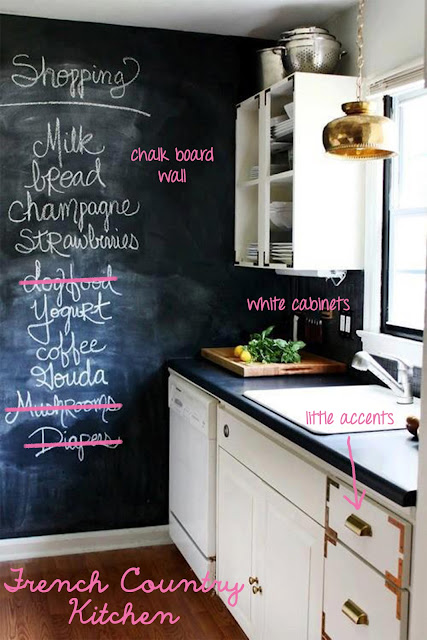 Shopping
Milk
bread
champagne
Strawberries
dogfood
Yogurt
coffee
Gouda
Mushrooms
Diapers
chalk board
wall
white cabinets
little accents
French Country
Kitchen